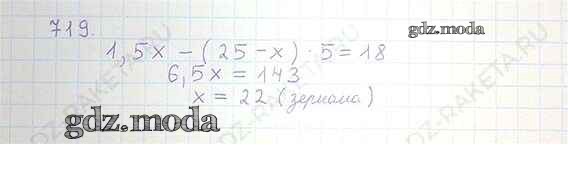 719.
gdz.moda
1,5x - (25 - x) · 5 = 18
6,5x = 143
x = 22 (зеркала)
gdz.moda
GDZ-RAKETA.RU